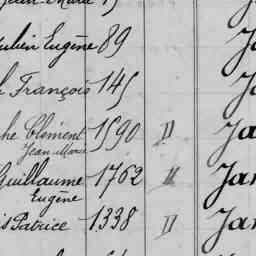 ulien Eugène 89 J
François 145 J
he Clément 1590 " Ja
Jean-Marie
Guillaume 1762 " Jan
Eugène
is Patrice 1338 " Jan